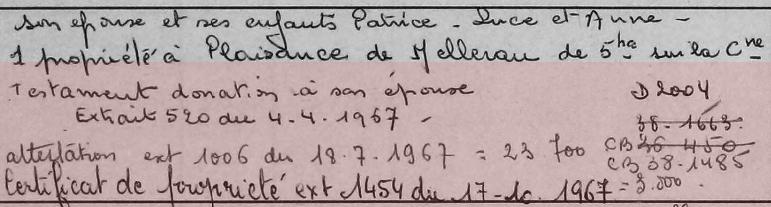 son épouse et ses enfants Patrice - Luce et Anne -
1 propriété à Plaisance de Mellerau de 5ha sur la Cne
Testament donation à son épouse D 2004
Extrait 520 du 4.4.1967 - 38-1663
attestation ext 1006 du 18.7.1967 = 23 700 CB 36 450
CB 38.1485
Certificat de propriété ext 1454 du 17-10.1967 = 3.000.